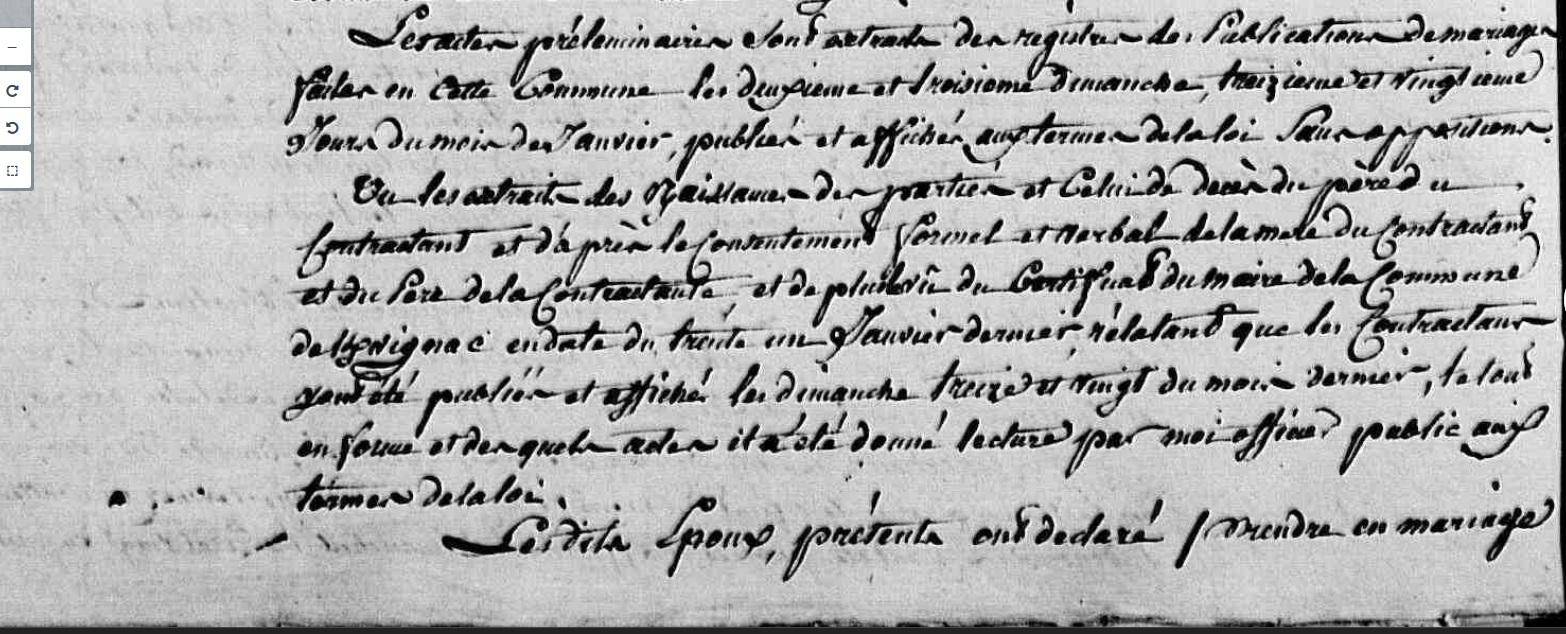 Les actes préleminaires sont extraits des registres des Publications de mariages
faites en cette Commune les deuxieme et troisieme dimanche, treizieme et vingtieme
Jours du mois de Janvier, publiés et affichés aux termes de la loi Sans oppositions.
Vu les extraits des Naissances des parties et Celui de decès du père du
Contractant et d'après le Consentement formel et verbal de la mere du Contractant
et du Pere de la Contractante, et de plus vû du Certificat du maire de la Commune
de en date du trente un Janvier dernier, rélatant que les Contractans
y ont été publiés et affiché les dimanche treize et vingt du mois dernier, le tout
en forme et des quels actes il a été donné lecture par moi officier public aux
termes de la loi.
Lesdits Epoux, présents ont declaré prendre en mariage